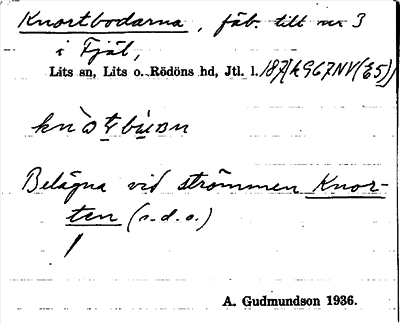 Knortbodarna, fäb. till nr 3
i Fjäl,
Lits sn, Lits o. Rödöns hd, Jtl. l.
Belägna vid strömmen Knor-
ten (s.d.o.)
A. Gudmundson 1936.